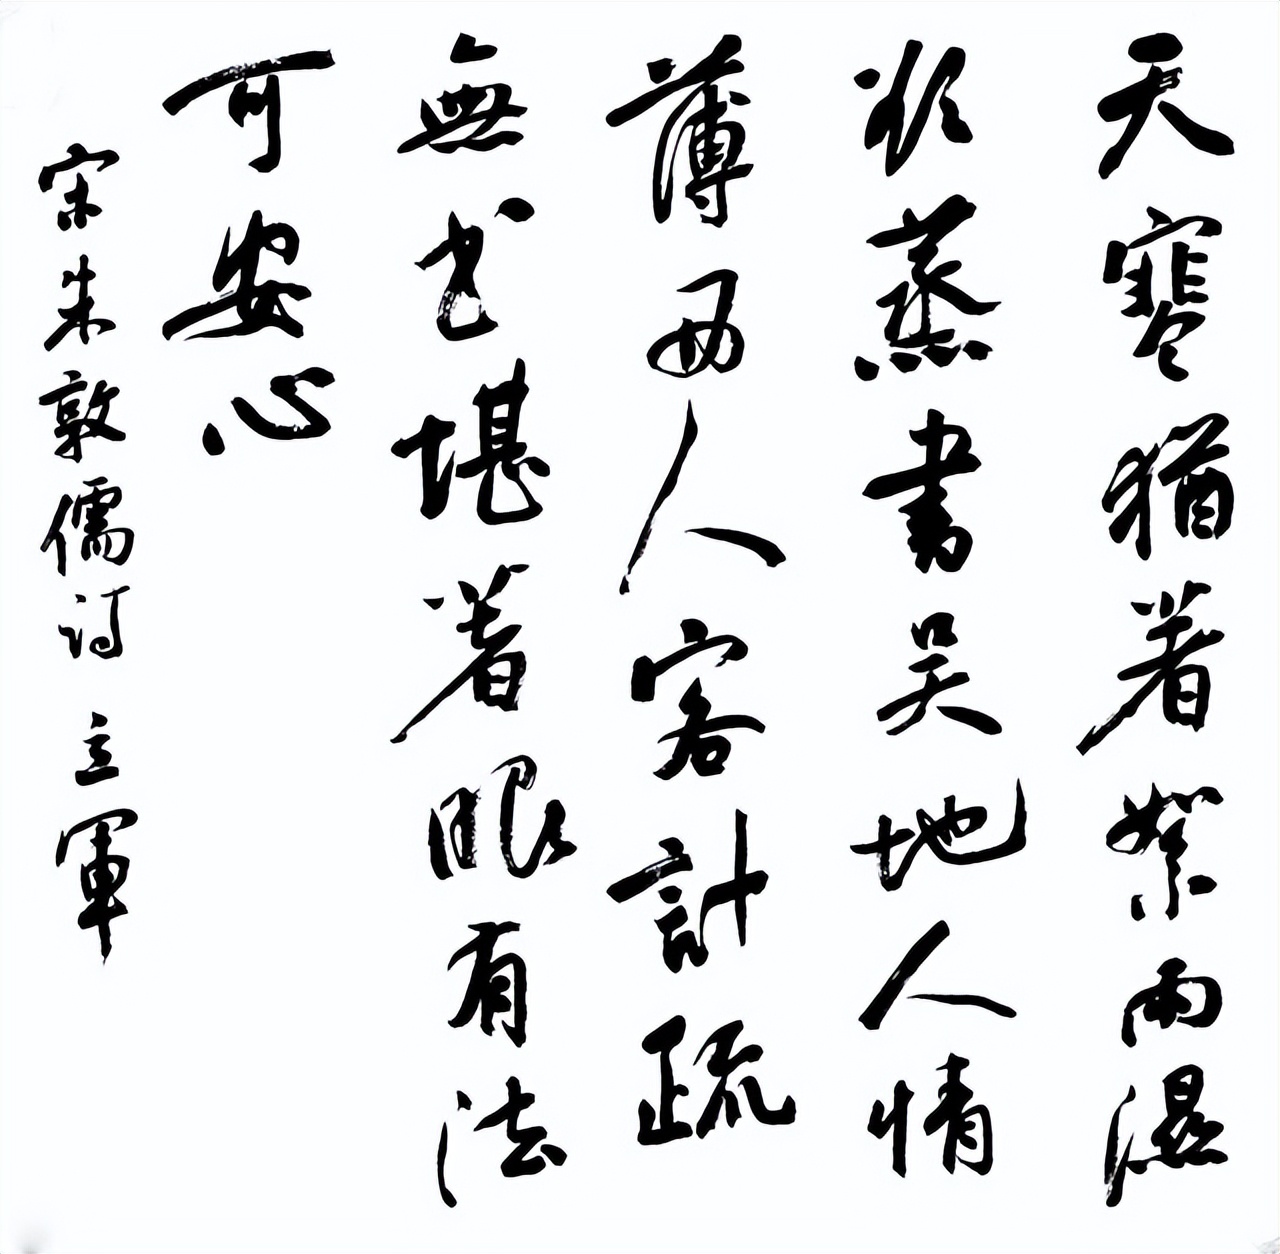 天寒猶著絮雨濕
欲蒸書吳地人情
薄西人客計疏
無書堪著眼有法
可安心
宋朱敦儒詩 立軍